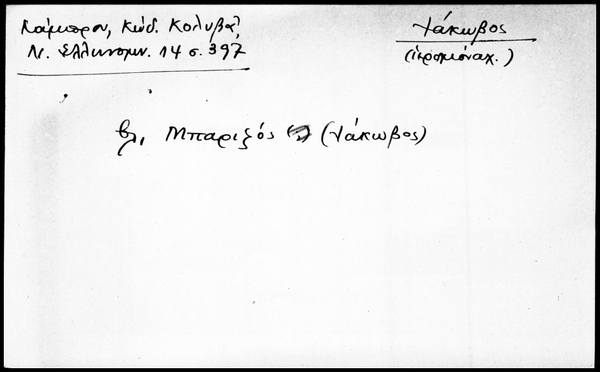 Λάμπρου, Κώδ. Κολυβᾶ,
Ν. Ἑλληνομν. 14 σ. 397
Ἰάκωβος
(ἱερομόναχ.)
βλ. Μπαριζός (Ἰάκωβος)